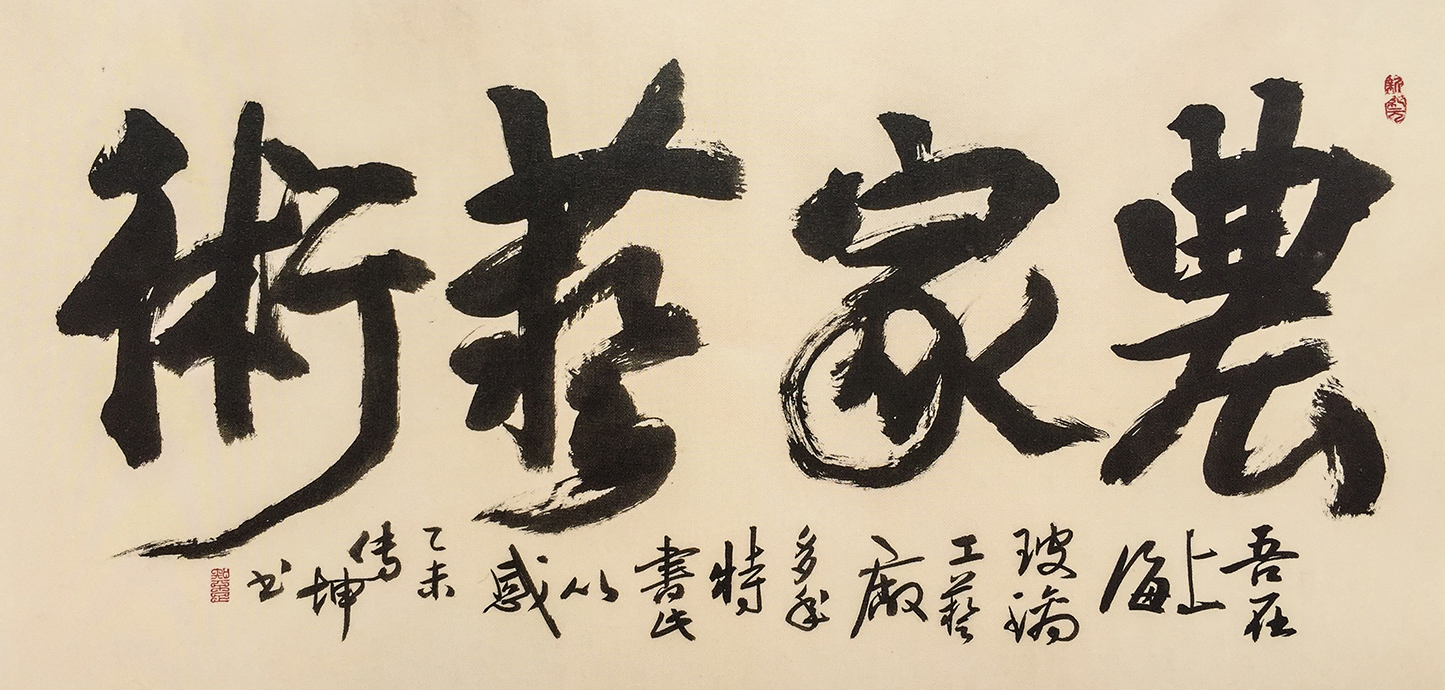 農家藝術
吾在上海玻璃工藝廠多年特書此以感
乙未
傳坤书